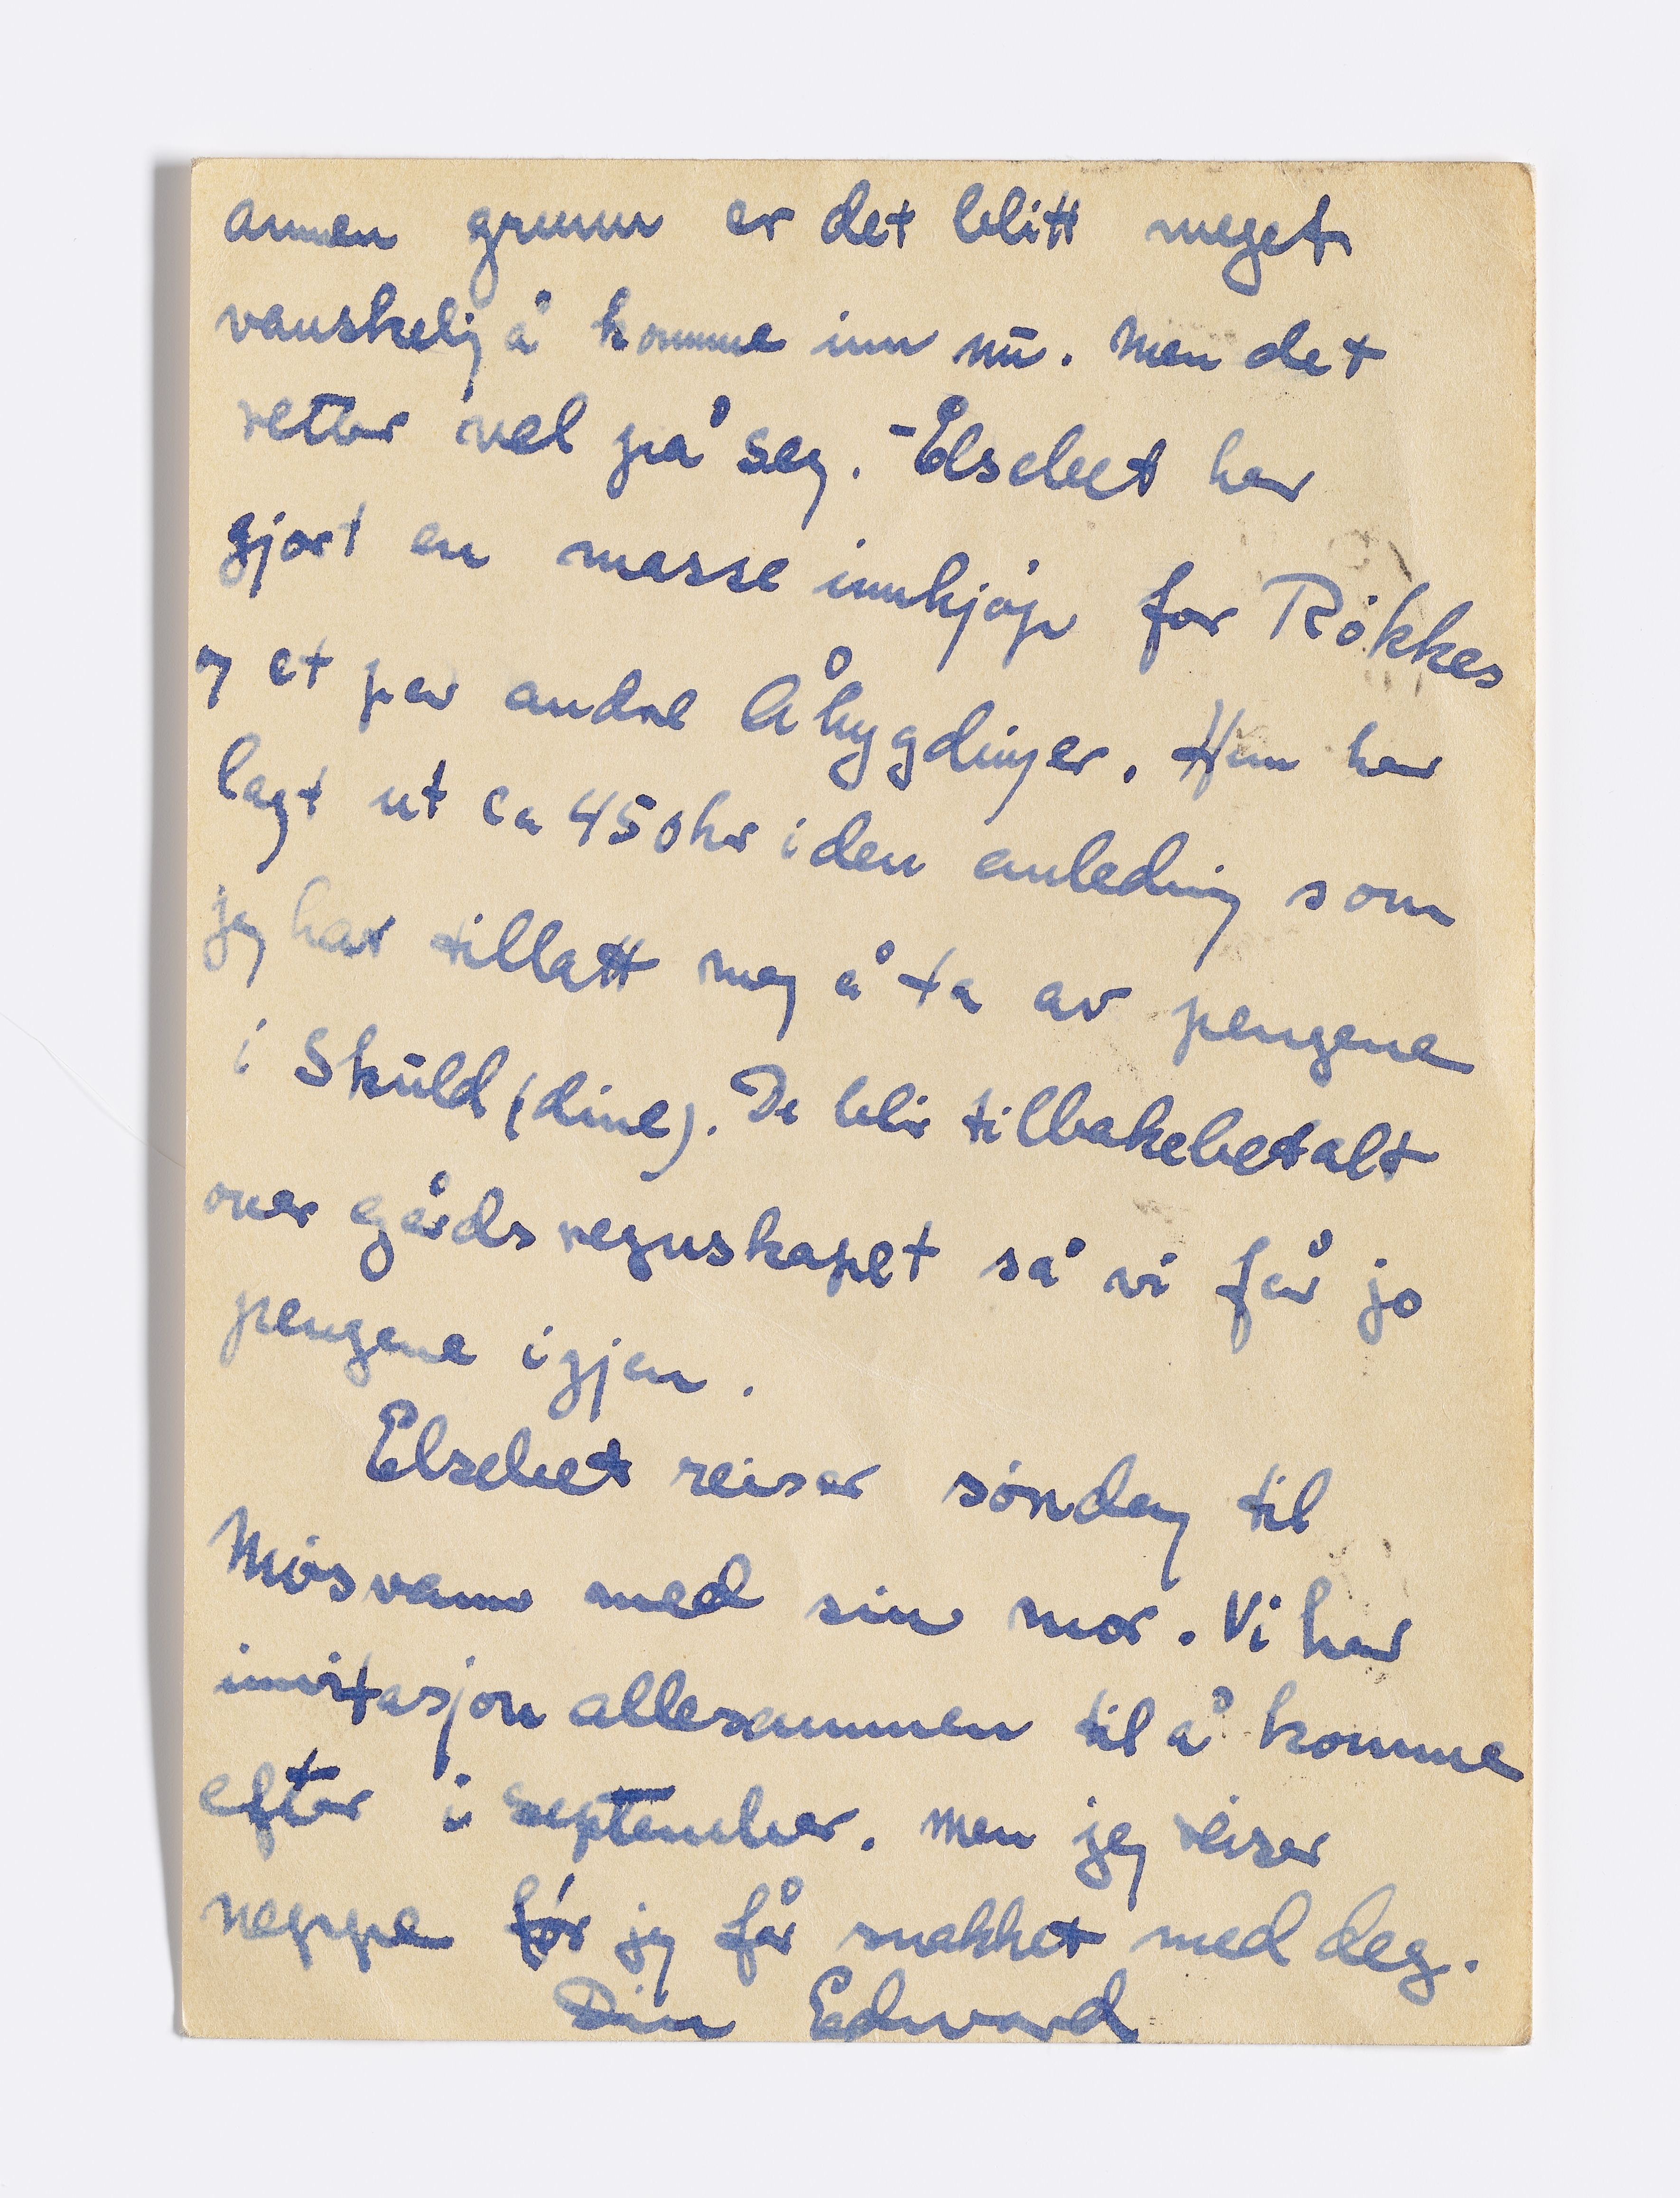 annen grunn er det blitt meget
vanskelig å komme inn nū. Men det
retter vel på seg. - Elsebet har
gjort en masse innkjøp for Røkkes
og et par andre Åbygdinger. Hun har
lagt ut ca 450 kr i den anledning som
jeg har tillatt meg å ta av pengene
i Skūld (dine). De blir tilbakebetalt
over gårdsregnskapet så vi får jo
pengene igjen.
Elsebet reiser søndag til
Møsvann med sin mor. Vi har
invitasjon allesammen til å komme
efter i september. Men jeg reiser
neppe før jeg får snakket med deg.
Din Edvard